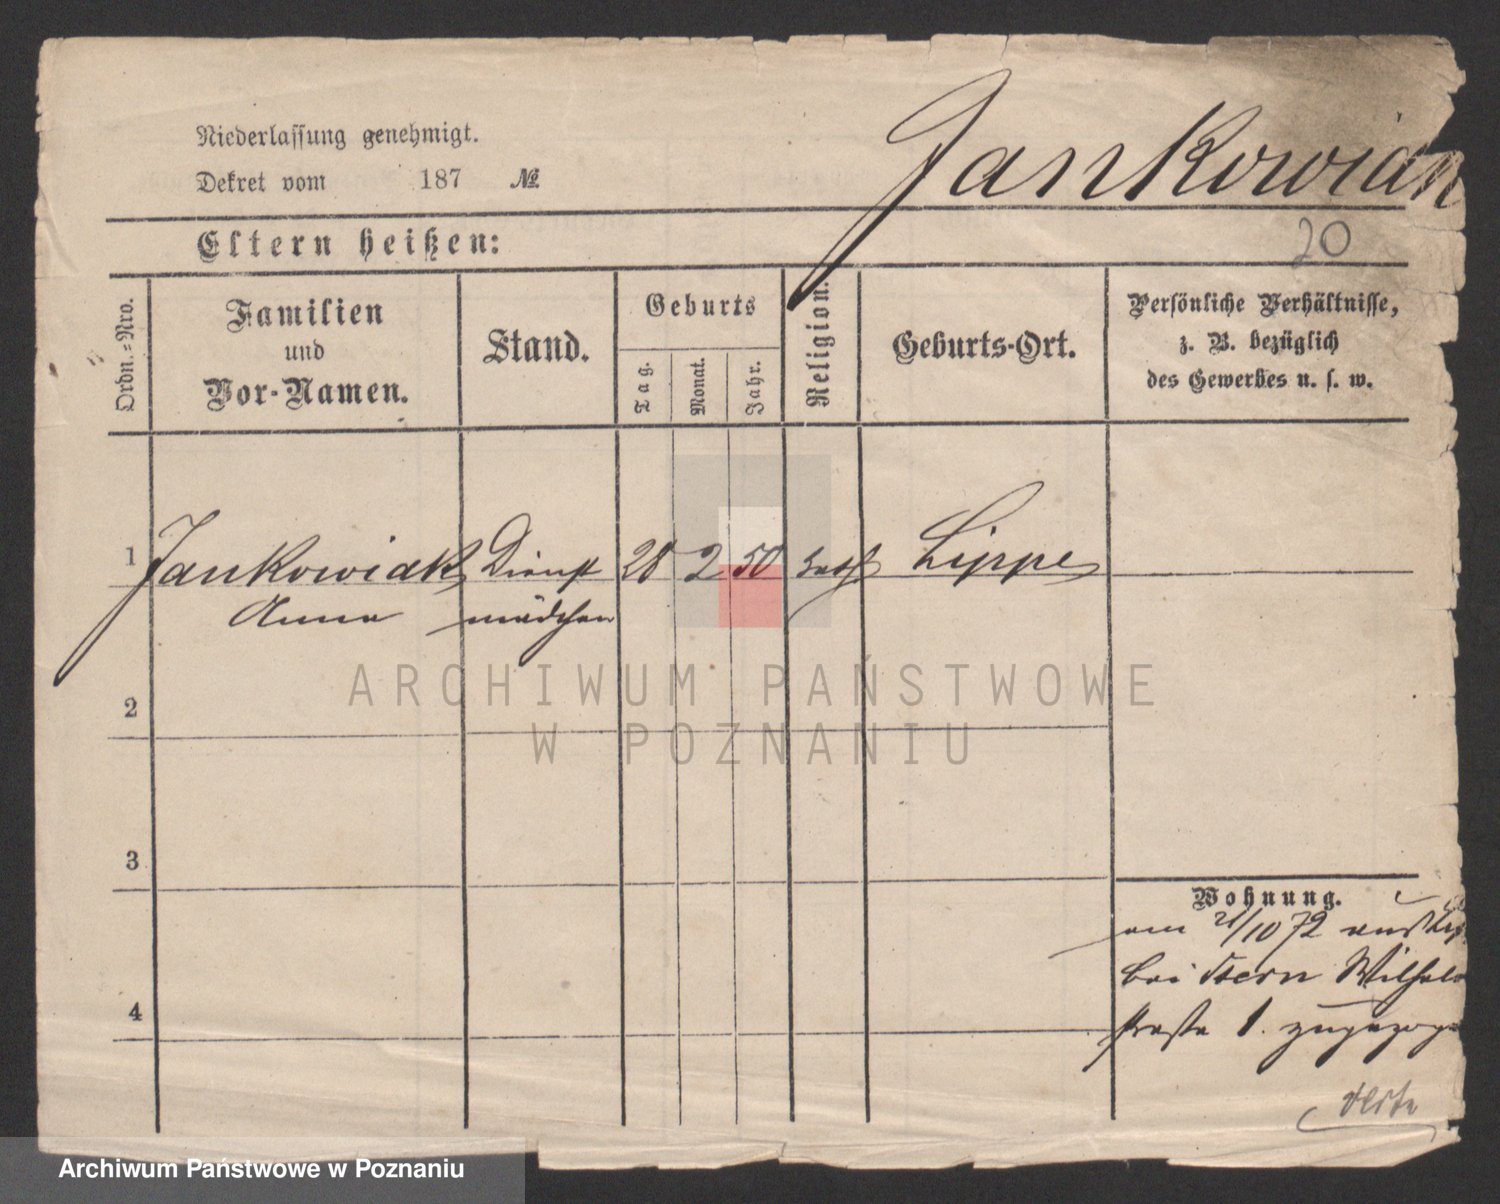 Niederlassung genehmigt.
Dekret vom 187 №
Jankowiak
Eltern heißen:
20
Ordn.=Nro.
Familien
und
Vor-Namen.
Stand.
Geburts
Tag.
Monat.
Jahr.
Religion.
Geburts-Ort.
Persönliche Verhältnisse,
z. B. bezüglich
des Gewerbes u. s. w.
1 Jankowiak Dienst 28 2 50 kath Lippe
Anna mädchen
2
3
4
Wohnung.
am 21/10 72 aus
bei Stern Wilhelm
straße 1. zugezogen
ARCHIWUM PAŃSTWOWE
W POZNANIU
Archiwum Państwowe w Poznaniu